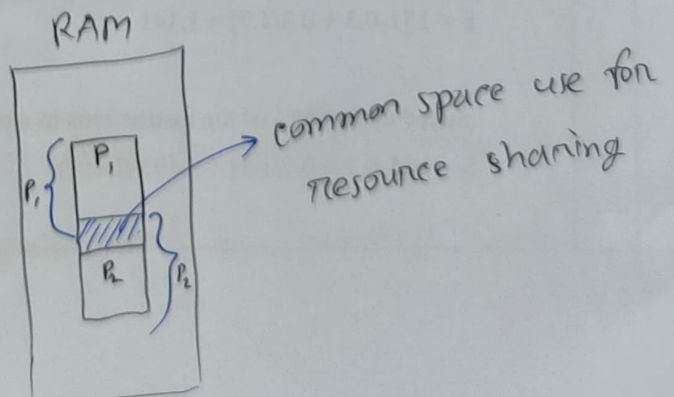 RAM
P₁
P₁
P₂
P₂
common space use for
resource sharing